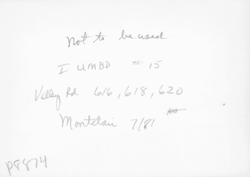 Not to be used
I UMBD # 15
Valley Rd 616, 618, 620
Montclair 7/81
P8874